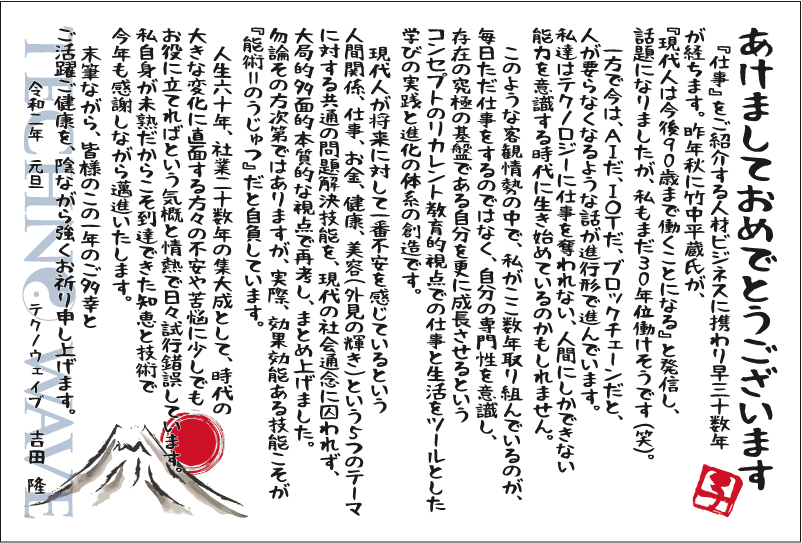 あけましておめでとうございます
『仕事』をご紹介する人材ビジネスに携わり早三十数年
が経ちます。昨年秋に竹中平蔵氏が、
『現代人は今後90歳まで働くことになる』と発信し、
話題になりましたが、私もまだ30年位働けそうです(笑)。
一方で今は、AIだ、IOTだ、ブロックチェーンだと、
人が要らなくなるような話が進行形で進んでいます。
私達はテクノロジーに仕事を奪われない、人間にしかできない
能力を意識する時代に生き始めているのかもしれません。
このような客観情勢の中で、私がここ数年取り組んでいるのが、
毎日ただ仕事をするのではなく、自分の専門性を意識し、
存在の究極の基盤である自分を更に成長させるという
コンセプトのリカレント教育的視点での仕事と生活をツールとした
学びの実践と進化の体系の創造です。
現代人が将来に対して一番不安を感じているという
人間関係、仕事、お金、健康、美容(外見の輝き)という5つのテーマ
に対する共通の問題解決技能を、現代の社会通念に囚われず、
大局的多面的本質的な視点で再考し、まとめ上げました。
勿論その方次第ではありますが、実際、効果効能ある技能こそが
『能術=のうじゅつ』だと自負しています。
人生六十年、社業二十数年の集大成として、時代の
大きな変化に直面する方々の不安や苦悩に少しでも
お役に立てればという気概と情熱で日々試行錯誤しています。
私自身が未熟だからこそ到達できた知恵と技術で
今年も感謝しながら邁進いたします。
末筆ながら、皆様のこの一年のご多幸と
ご活躍ご健康を、陰ながら強くお祈り申し上げます。
令和二年 元旦
テクノウェイブ 吉田 隆
TECHNO WAVE